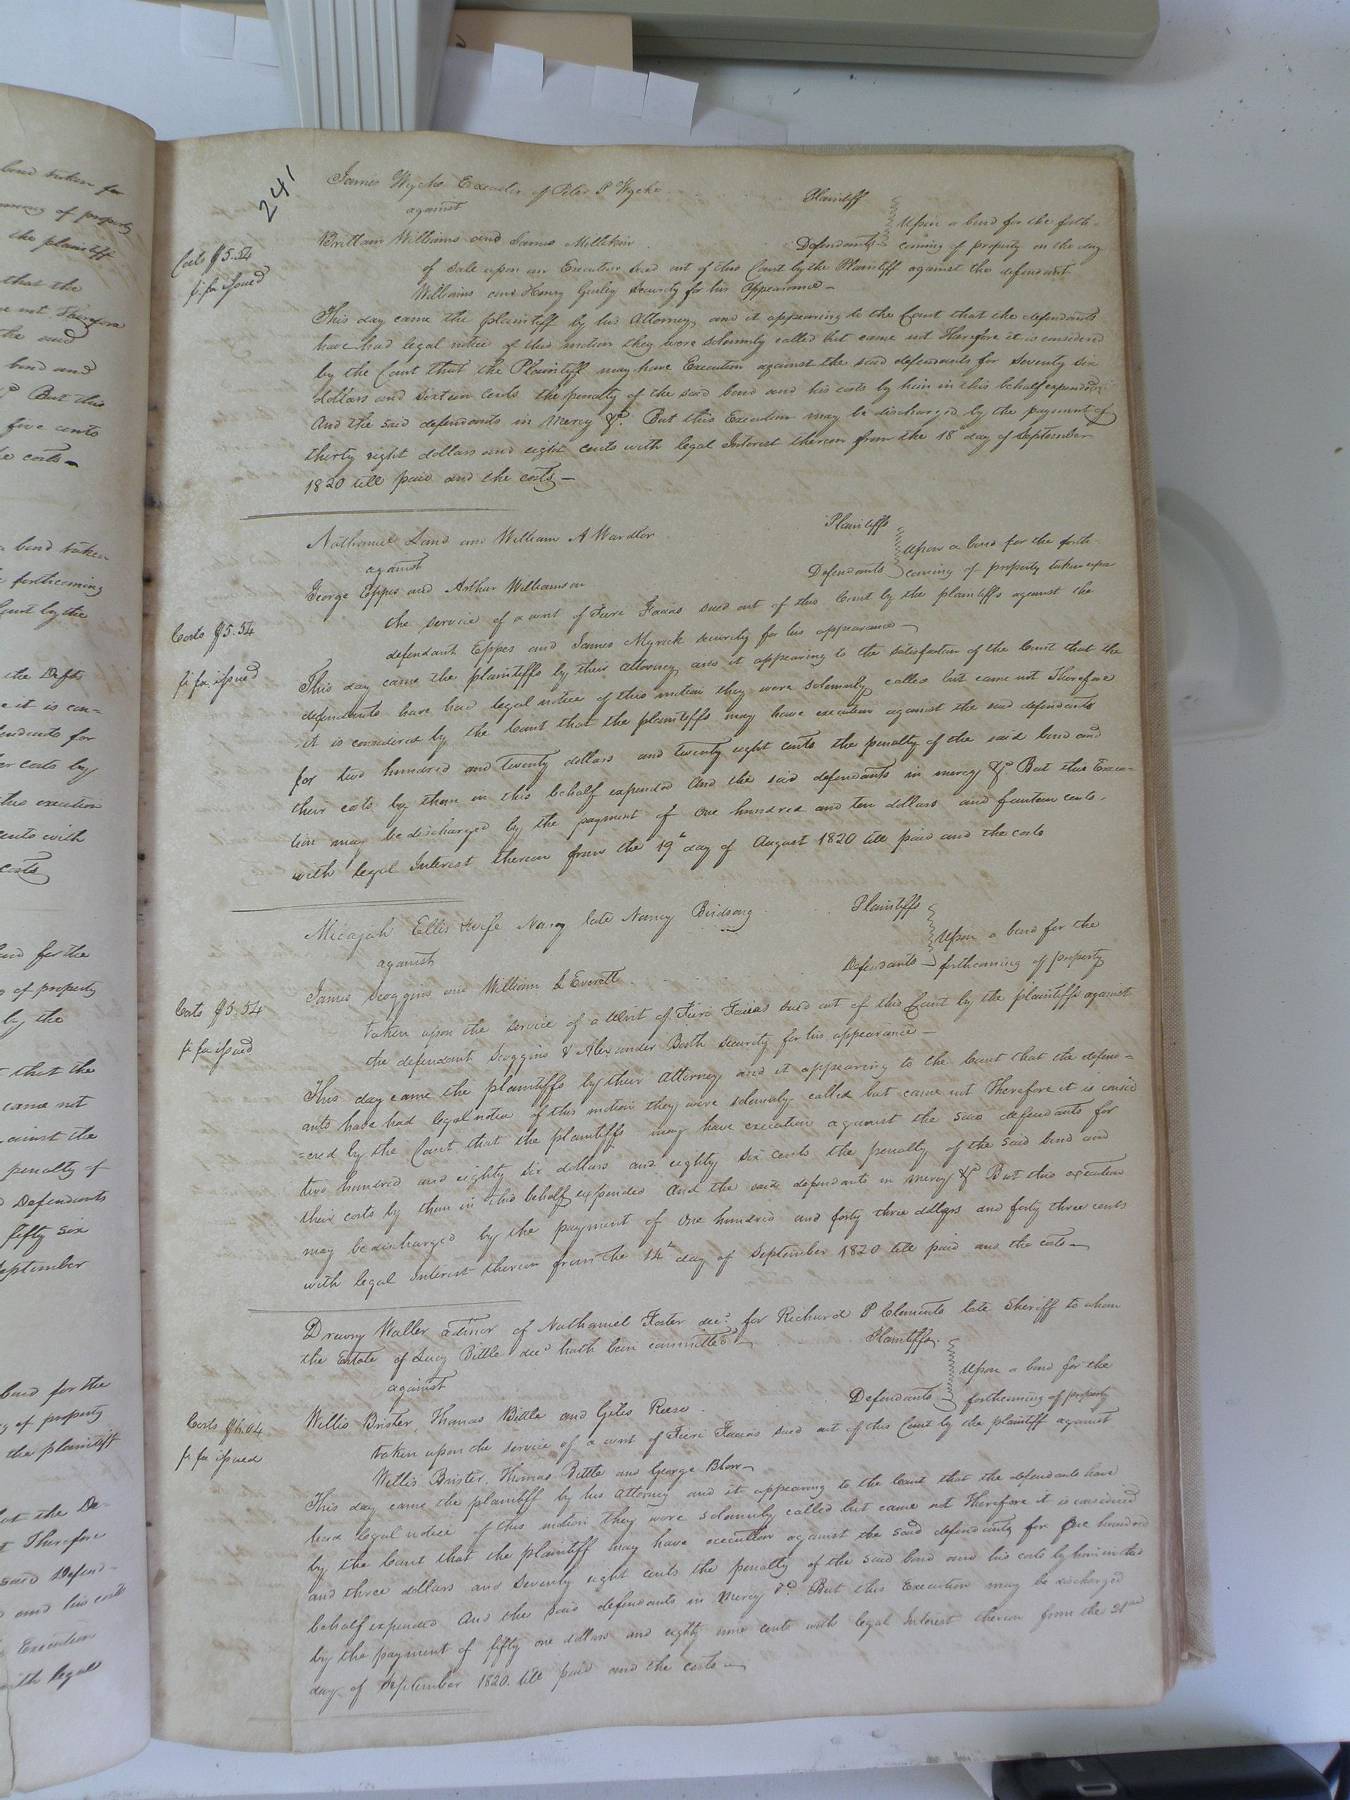 241
James Wyche Executor of Peter P Wyche Plaintiff
against
Upon a bond for the forth-
Brittain Williams and James Millikin Defendants coming of property on the day
of sale upon an Execution sued out of this Court by the Plaintiff against the defendant
Williams and Henry Gurley Security for his Appearance—
Costs $5.54
fi fa issued
This day came the plaintiff by his Attorney, and it appearing to the Court that the defendants
have had legal notice of this motion they were solemnly called but came not Therefore it is considered
by the Court that the Plaintiff may have Execution against the said defendants for seventy six
dollars and sixteen Cents the penalty of the said bond and his costs by him in this behalf expended
And the said defendants in Mercy &c. But this Execution may be discharged by the payment of
thirty eight dollars and eight cents with legal Interest thereon from the 18th day of September
1820 till paid and the costs—
Nathaniel Land and William A Wardlor Plaintiffs
against
Upon a bond for the forth-
George Eppes and Arthur Williamson Defendants coming of property taken upon
the service of a writ of Fieri Facias sued out of this Court by the plaintiffs against the
defendant Eppes and James Myrick security for his appearance—
Costs $5.54
fi fa issued
This day came the plaintiffs by their Attorney, and it appearing to the satisfaction of the Court that the
defendants have had legal notice of this motion they were solemnly called but came not Therefore
it is considered by the Court that the plaintiffs may have execution against the said defendants
for two hundred and twenty dollars and twenty eight cents the penalty of the said bond and
their costs by them in this behalf expended And the said defendants in mercy &c But this Execu=
tion may be discharged by the payment of One hundred and ten dollars and fourteen cents
with legal Interest thereon from the 19th day of August 1820 till paid and the costs
Micajah Ellis & wife Nancy late Nancy Birdsong Plaintiffs
against
Upon a bond for the
James Scoggins and William L Everett Defendants forthcoming of property
taken upon the service of a Writ of Fieri Facias sued out of this Court by the plaintiffs against
the defendant Scoggins & Alexander Booth security for his appearance—
Costs $5.54
fi fa issued
This day came the plaintiffs by their Attorney and it appearing to the Court that the defend=
ants have had legal notice of this motion they were solemnly called but came not Therefore it is consid
=ered by the Court that the plaintiffs may have execution against the said defendants for
two hundred and eighty six dollars and eighty six cents the penalty of the said bond and
their costs by them in this behalf expended And the said defendants in mercy &c But this execution
may be discharged by the payment of One hundred and forty three dollars and forty three cents
with legal Interest thereon from the 14th day of September 1820 till paid and the costs—
Drewry Waller admor of Nathaniel Foster decd. for Richard P Clements late Sheriff to whom
the Estate of Lucy Bittle decd hath been committed Plaintiffs
against
Upon a bond for the
Willis Brister, Thomas Bittle and Giles Reese Defendants forthcoming of property
taken upon the service of a writ of Fieri Facias sued out of this Court by the plaintiff against
Willis Brister, Thomas Bittle and George Blow—
Costs $6.04
fi fa issued
This day came the plaintiff by his Attorney and it appearing to the Court that the defendants have
had legal notice of this motion they were solemnly called but came not Therefore it is considered
by the Court that the plaintiff may have execution against the said defendants for One hundred
and three dollars and seventy eight cents the penalty of the said bond and his costs by him in this
behalf expended And the said defendants in Mercy &c. But this Execution may be discharged
by the payment of fifty one dollars and eighty nine cents with legal Interest thereon from the 21st
day of September 1820. till paid and the costs—